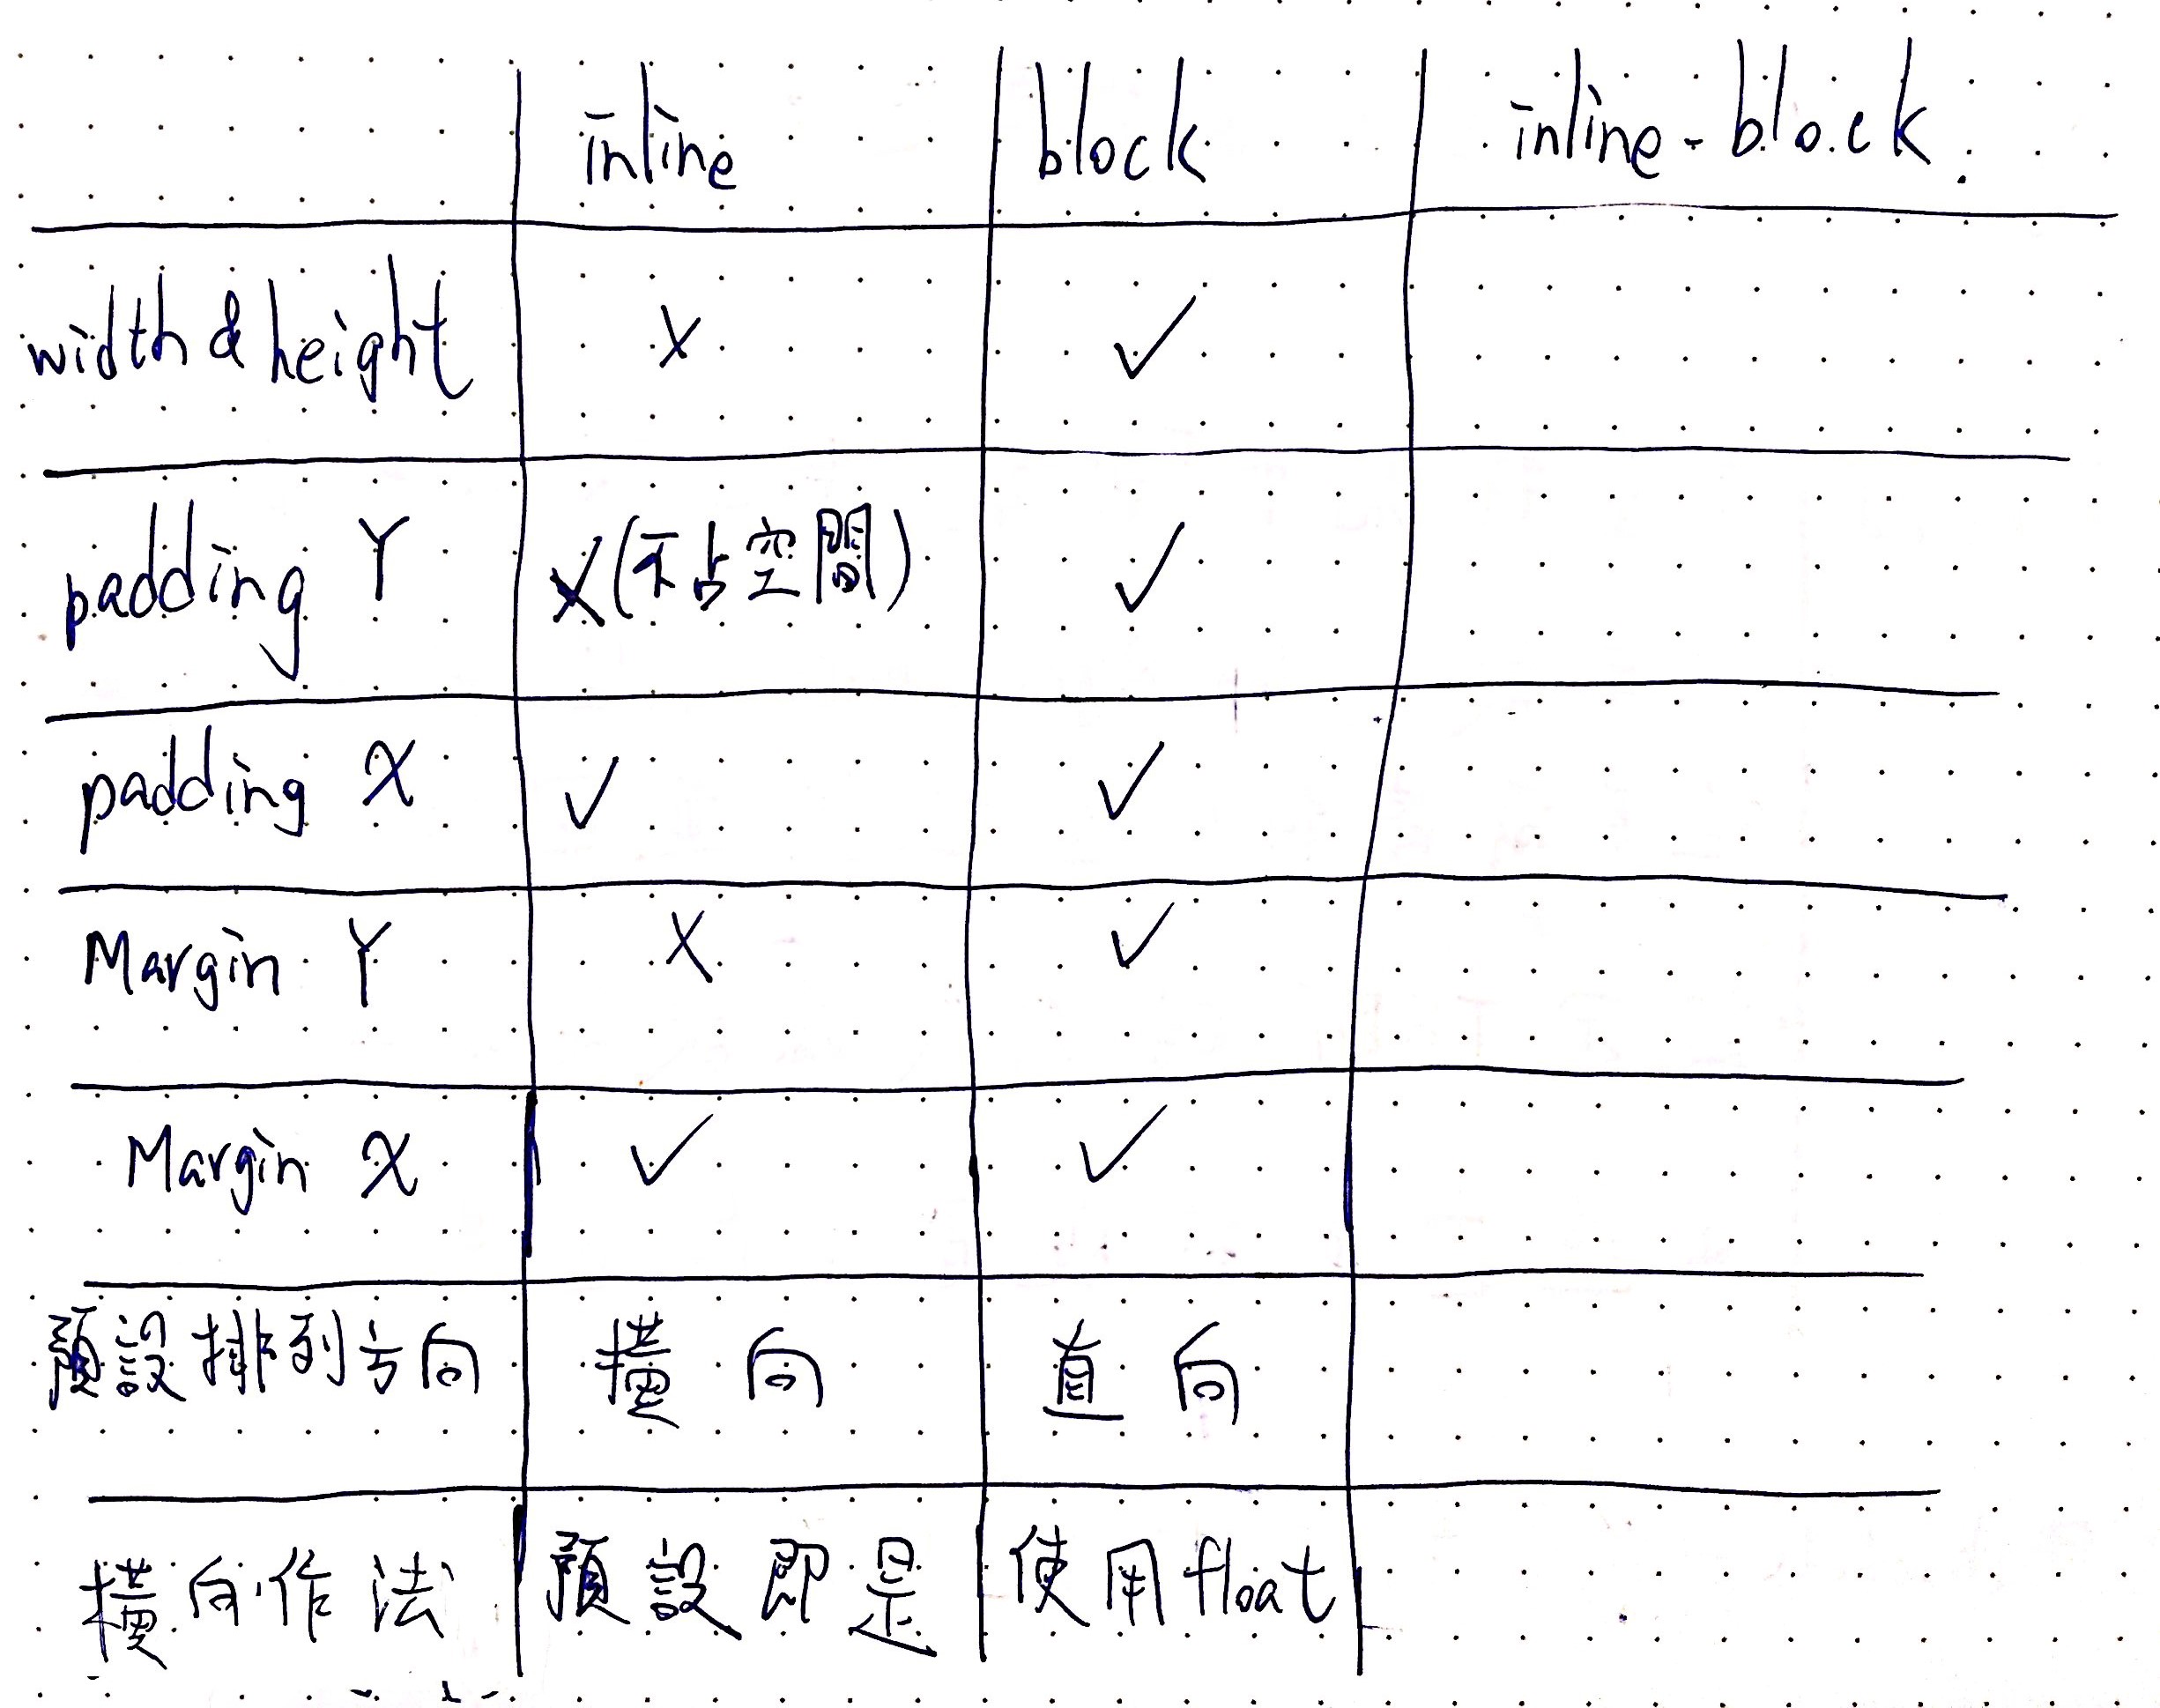 inline block inline-block
width & height X ✓
padding Y X(不占空間) ✓
padding X ✓ ✓
Margin Y X ✓
Margin X ✓ ✓
預設排列方向 橫向 直向
橫向作法 預設即是 使用float